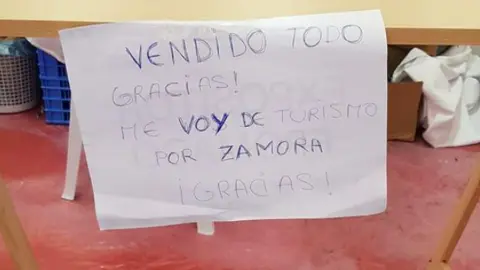 VENDIDO TODO
GRACIAS!
ME VOY DE TURISMO
POR ZAMORA
¡GRACIAS!